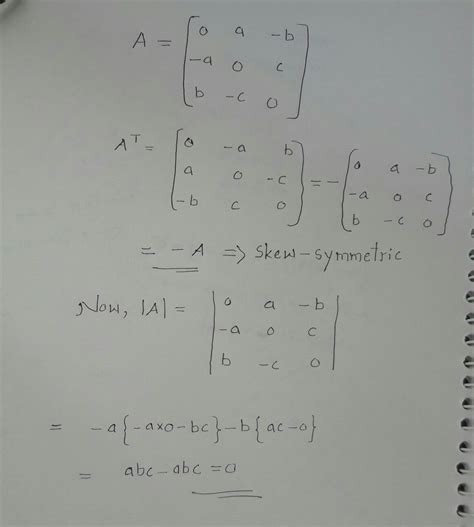 A = [0 a -b
-a 0 c
b -c 0]
Aᵀ = [0 -a b
a 0 -c
-b c 0] = -[0 a -b
-a 0 c
b -c 0]
= -A ⇒ skew-symmetric
Now, |A| = |0 a -b
-a 0 c
b -c 0|
= -a{-a×0-bc}-b{ac-0}
= abc-abc=0